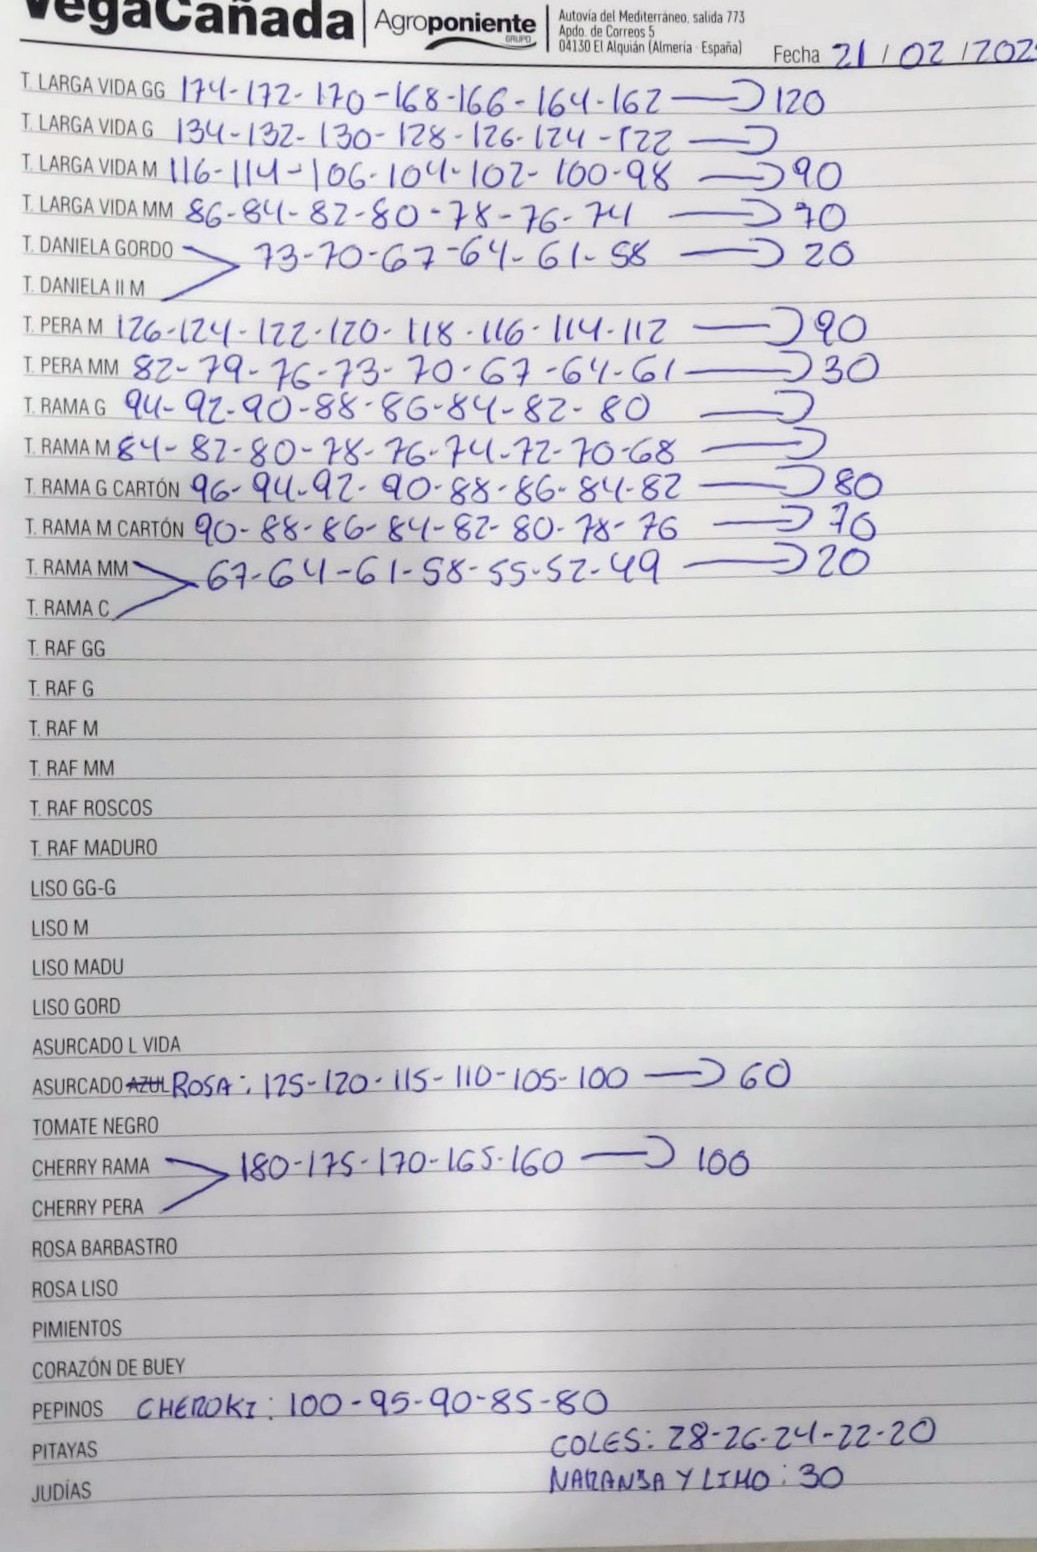 VegaCañada Agroponiente GRUPO
Autovía del Mediterráneo, salida 773
Apdo. de Correos 5
04130 El Alquián (Almería · España)
Fecha 21/02/202
T. LARGA VIDA GG 174-172-170-168-166-164-162 120
T. LARGA VIDA G 134-132-130-128-126-124-122
T. LARGA VIDA M 116-114-106-104-102-100-98 90
T. LARGA VIDA MM 86-84-82-80-78-76-74 70
T. DANIELA GORDO 73-70-67-64-61-58 20
T. DANIELA II M
T. PERA M 126-124-122-120-118-116-114-112 90
T. PERA MM 82-79-76-73-70-67-64-61 30
T. RAMA G 94-92-90-88-86-84-82-80
T. RAMA M 84-82-80-78-76-74-72-70-68
T. RAMA G CARTÓN 96-94-92-90-88-86-84-82 80
T. RAMA M CARTÓN 90-88-86-84-82-80-78-76 70
T. RAMA MM 67-64-61-58-55-52-49 20
T. RAMA C
T. RAF GG
T. RAF G
T. RAF M
T. RAF MM
T. RAF ROSCOS
T. RAF MADURO
LISO GG-G
LISO M
LISO MADU
LISO GORD
ASURCADO L VIDA
ASURCADO AZUL ROSA: 125-120-115-110-105-100 60
TOMATE NEGRO
CHERRY RAMA 180-175-170-165-160 100
CHERRY PERA
ROSA BARBASTRO
ROSA LISO
PIMIENTOS
CORAZÓN DE BUEY
PEPINOS CHEROKI: 100-95-90-85-80
PITAYAS COLES: 28-26-24-22-20
JUDÍAS NARANJA Y LIMO: 30